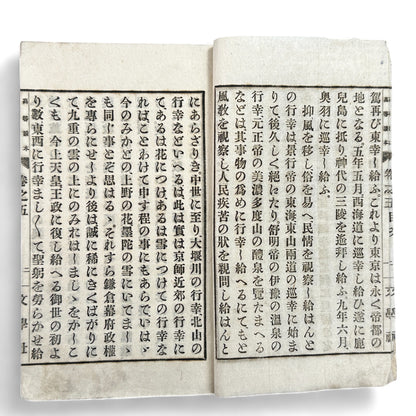 駕再ひ東幸し給ふこれより東京は永く帝都の
地となる五年五月西海道に巡幸し給ひ遂に鹿
兒島に抵り神代の三陵を遥拜し給ふ九年六月
奥羽に巡幸し給ふ
抑風を移し俗を易へ民情を視察し給はんと
の行幸は景行帝の東海東山南道の巡幸に始ま
りて後久しく絕にたり舒明帝の伊豫の温泉の
行幸元正帝の美濃多度山の醴泉を覽たまへる
などは其事物の爲めに行幸し給へるにてもと
風敎を視察し人民疾苦の狀を親問し給はんと
にあらざりき中世に至り大堰川の行幸北山の
行幸などいへるは此は實は京師近郊の行幸に
てあるは花につけてあるは雪につけての行幸な
ればことわけて申す程の事にもあらていはゞ
今のみかどの上野の花墨陀の雪にいてましゝ
も同し事と思はるゝそれすら鎌倉幕府政權
を專らにせしより後は誠に稀にきくばかりに
て九重の雲の上にのみれはしましゝをかしこ
くも 今上天皇王政に復し給へる御世の初よ
り數東西に行幸ましくて聖躬を勞らかせ給
卷之五
二
文學社